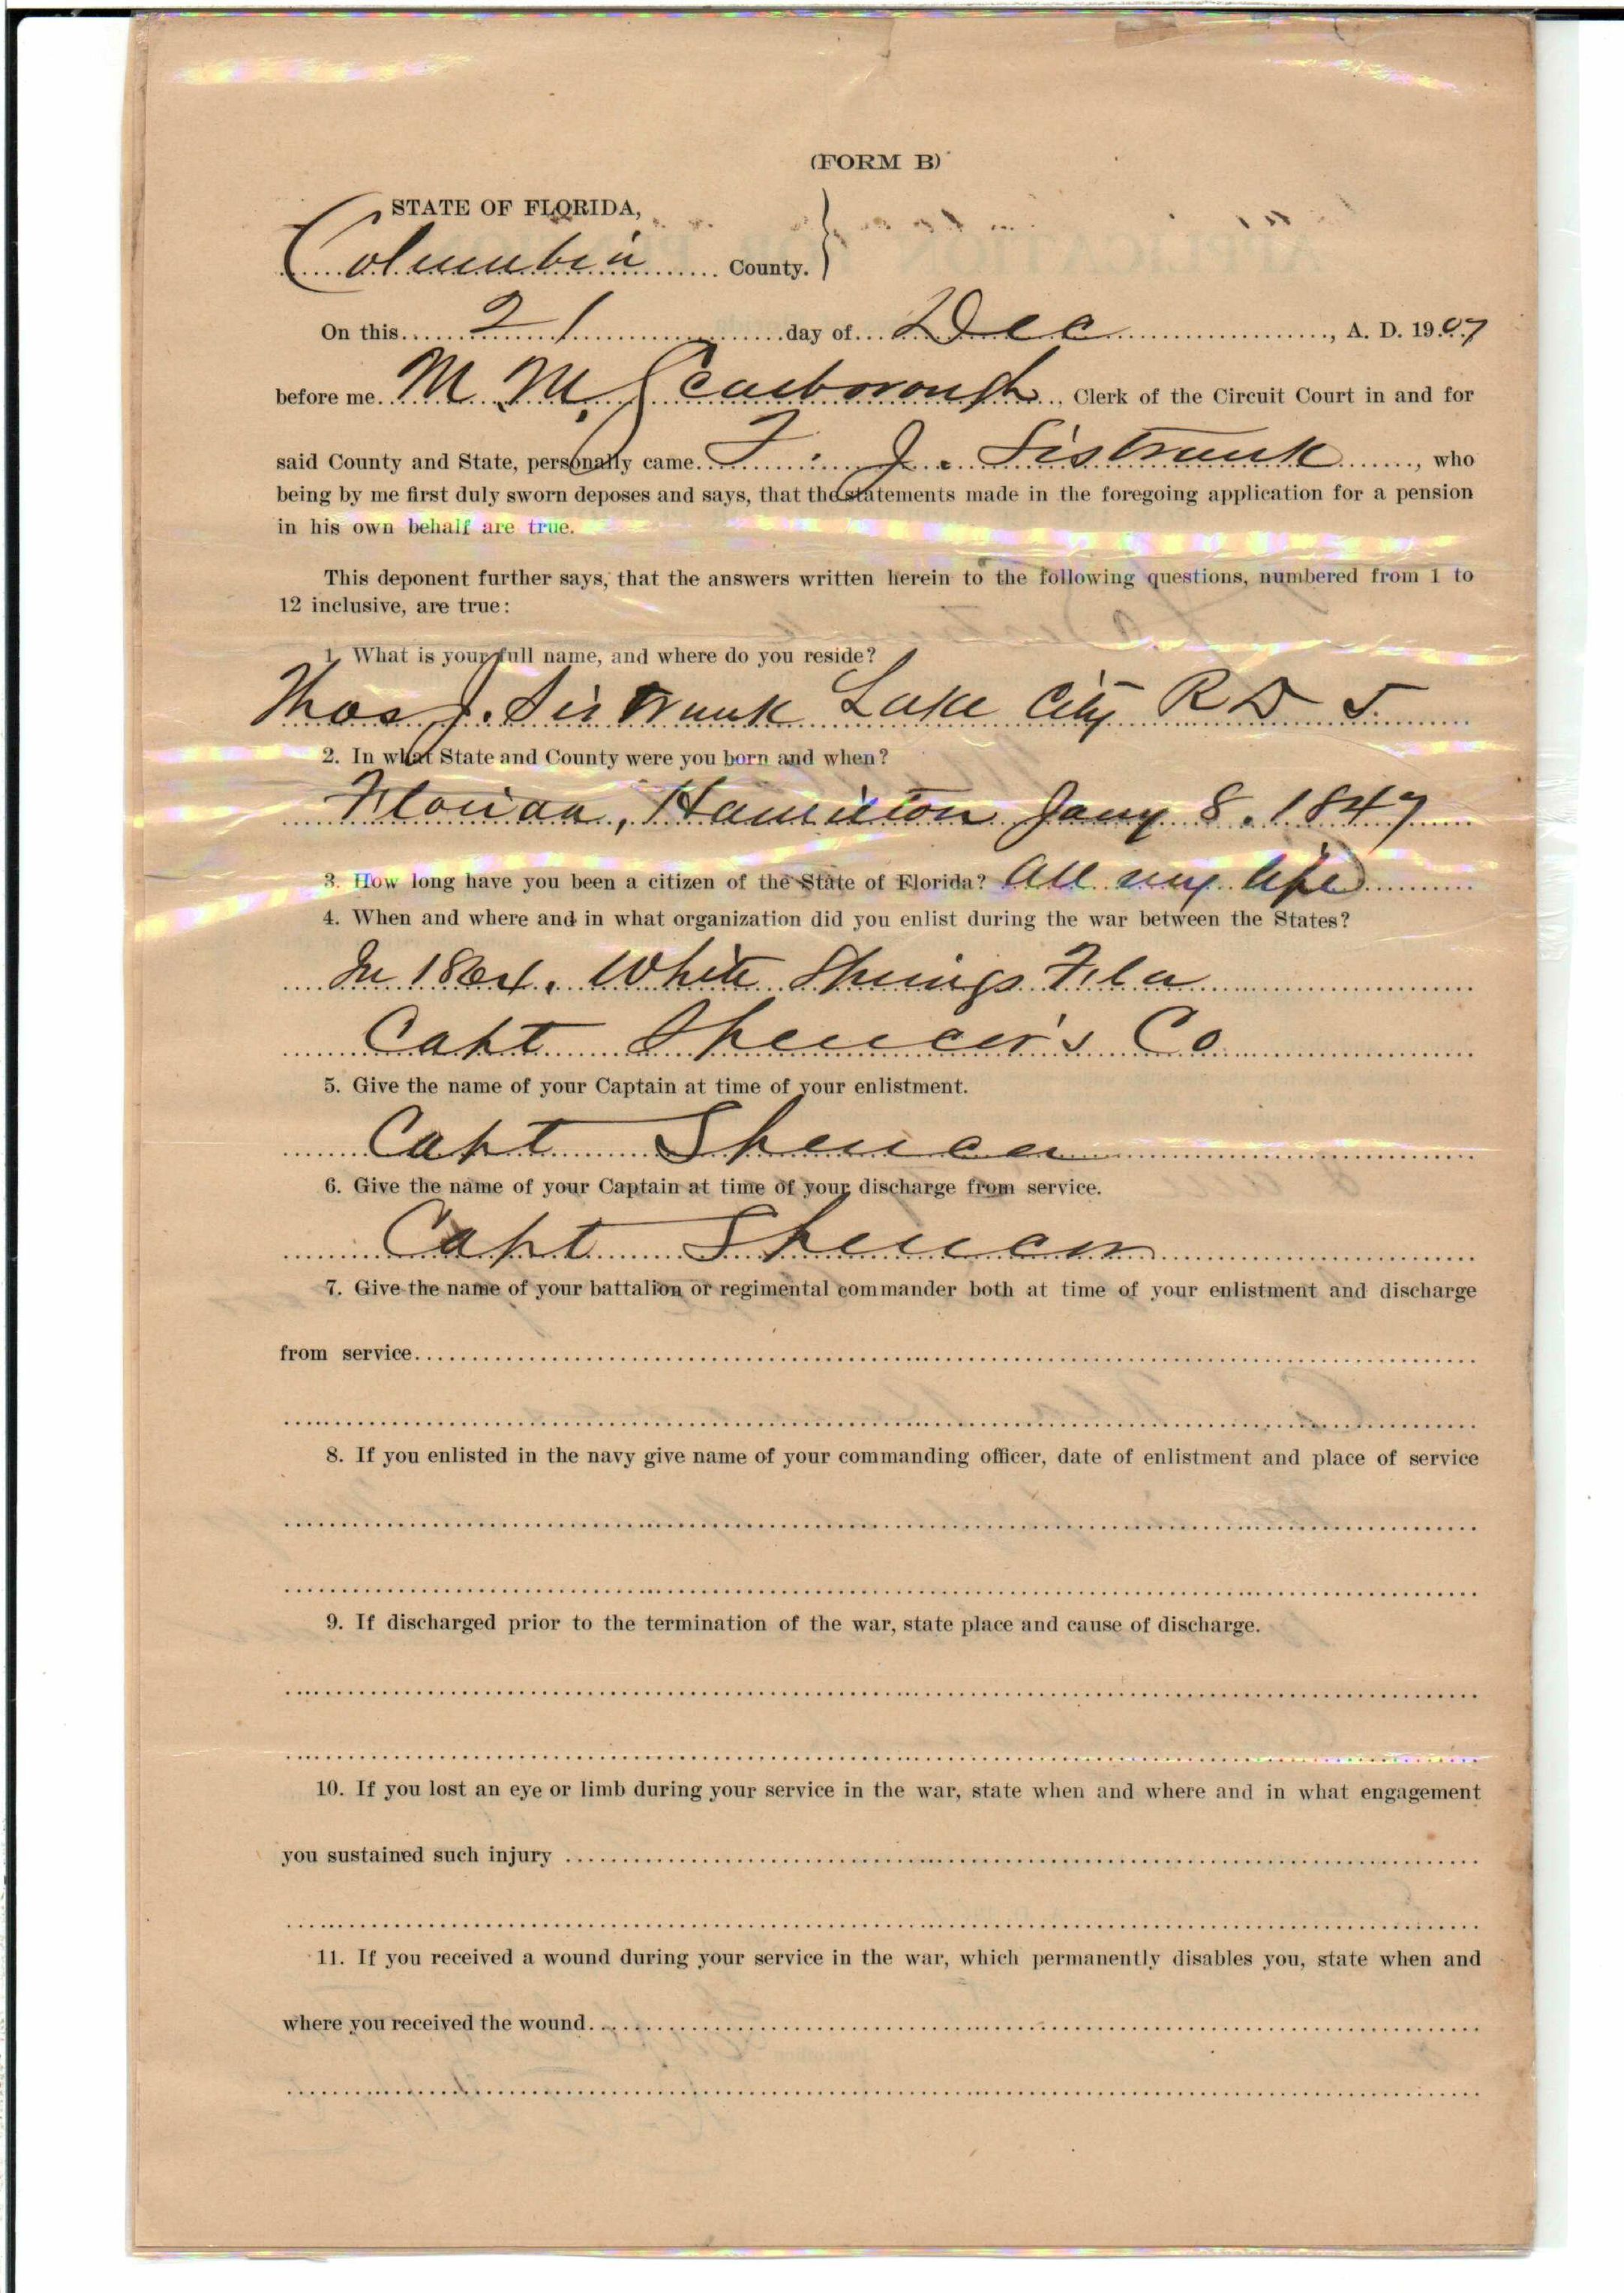 (FORM B)
STATE OF FLORIDA,
Columbia County.
On this 21 day of Dec, A. D. 1907
before me M. M. Scarborough, Clerk of the Circuit Court in and for
said County and State, personally came T. J. Sistrunk, who
being by me first duly sworn deposes and says, that the statements made in the foregoing application for a pension
in his own behalf are true.
This deponent further says, that the answers written herein to the following questions, numbered from 1 to
12 inclusive, are true:
1. What is your full name, and where do you reside?
Thos J. Sistrunk Lake City R D 5
2. In what State and County were you born and when?
Florida, Hamilton Jany 8. 1847
3. How long have you been a citizen of the State of Florida? All my life
4. When and where and in what organization did you enlist during the war between the States?
In 1864. White Springs Fla
Capt Spencer's Co
5. Give the name of your Captain at time of your enlistment.
Capt Spencer
6. Give the name of your Captain at time of your discharge from service.
Capt Spencer
7. Give the name of your battalion or regimental commander both at time of your enlistment and discharge
from service
8. If you enlisted in the navy give name of your commanding officer, date of enlistment and place of service
9. If discharged prior to the termination of the war, state place and cause of discharge.
10. If you lost an eye or limb during your service in the war, state when and where and in what engagement
you sustained such injury
11. If you received a wound during your service in the war, which permanently disables you, state when and
where you received the wound.